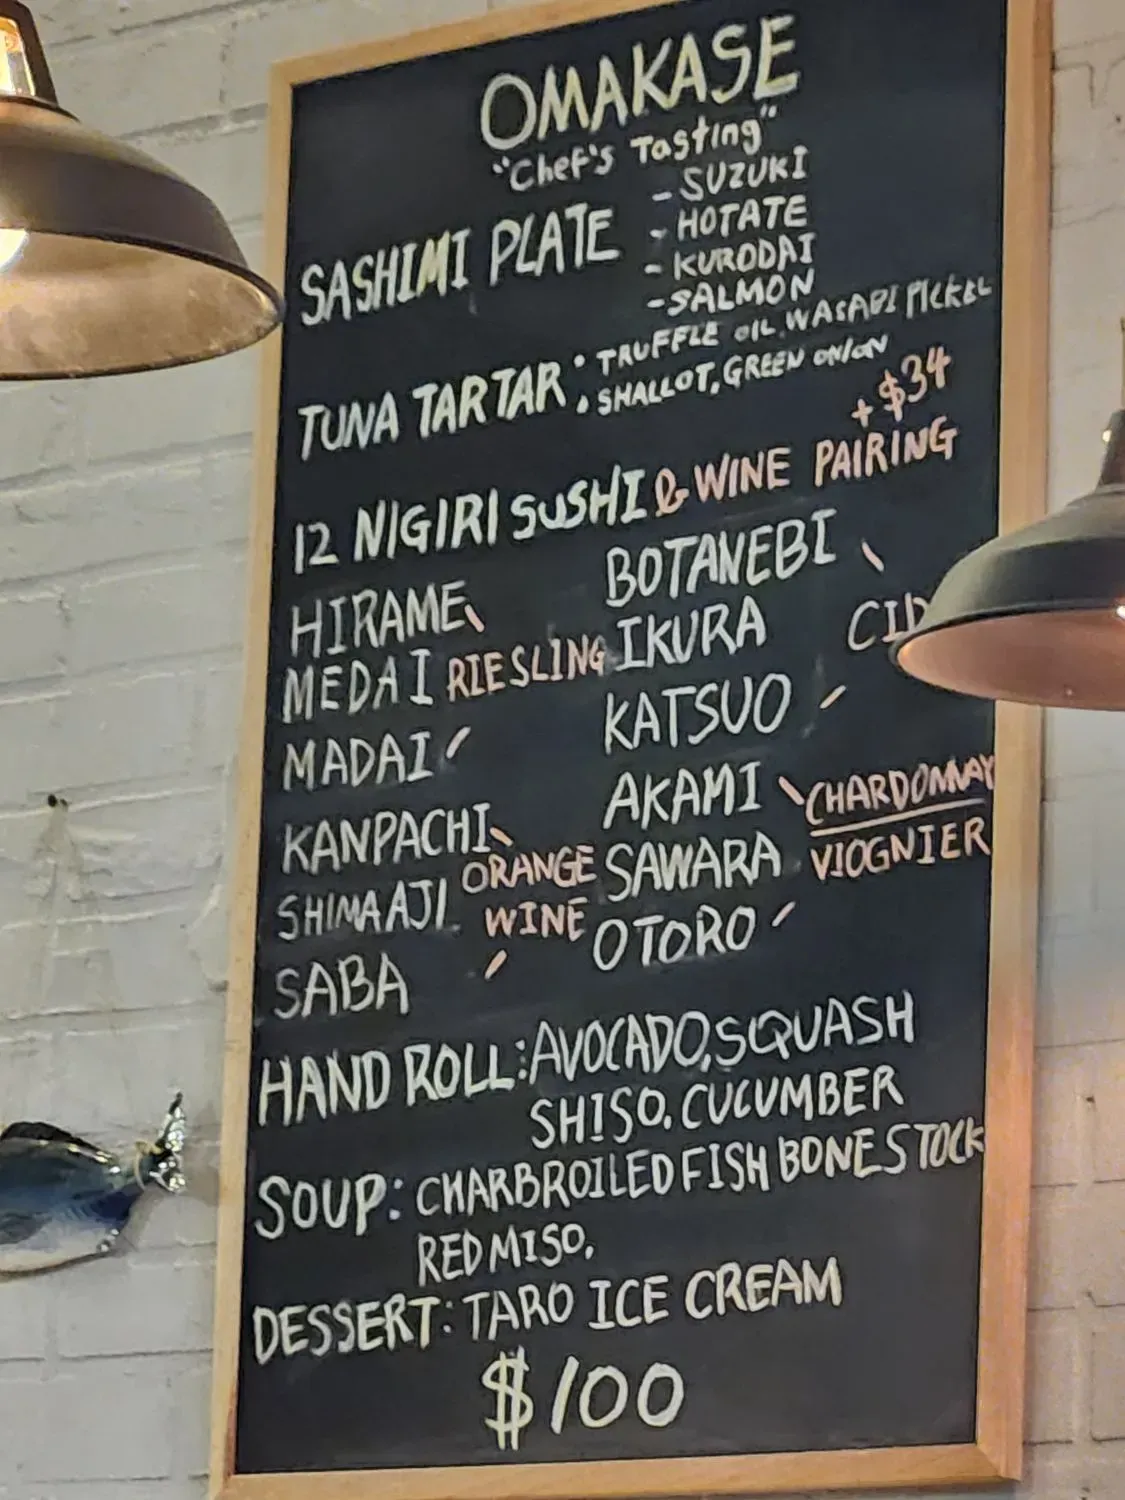 OMAKASE
"Chef's Tasting"
SASHIMI PLATE
- SUZUKI
- HOTATE
- KURODAI
- SALMON
TUNA TARTAR
• TRUFFLE OIL. WASABI PICKEL
• SHALLOT, GREEN ONION
+ $34
12 NIGIRI SUSHI & WINE PAIRING
HIRAME
MEDAI RIESLING
MADAI
KANPACHI
SHIMAAJI
ORANGE
WINE
SABA
BOTANEBI
IKURA
KATSUO
AKAMI
SAWARA
OTORO
CHARDONNAY
VIOGNIER
HAND ROLL: AVOCADO, SQUASH
SHISO, CUCUMBER
SOUP: CHARBROILED FISH BONE STOCK
RED MISO,
DESSERT: TARO ICE CREAM
$100